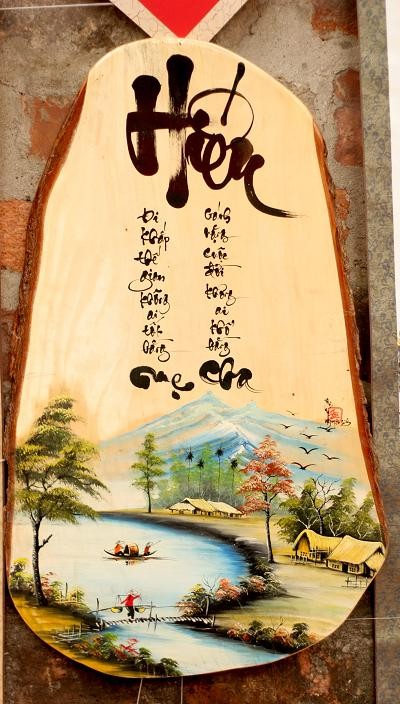 Hiếu
Đi khắp thế gian không ai tốt bằng
mẹ
Gánh nặng cuộc đời không ai khổ bằng
cha